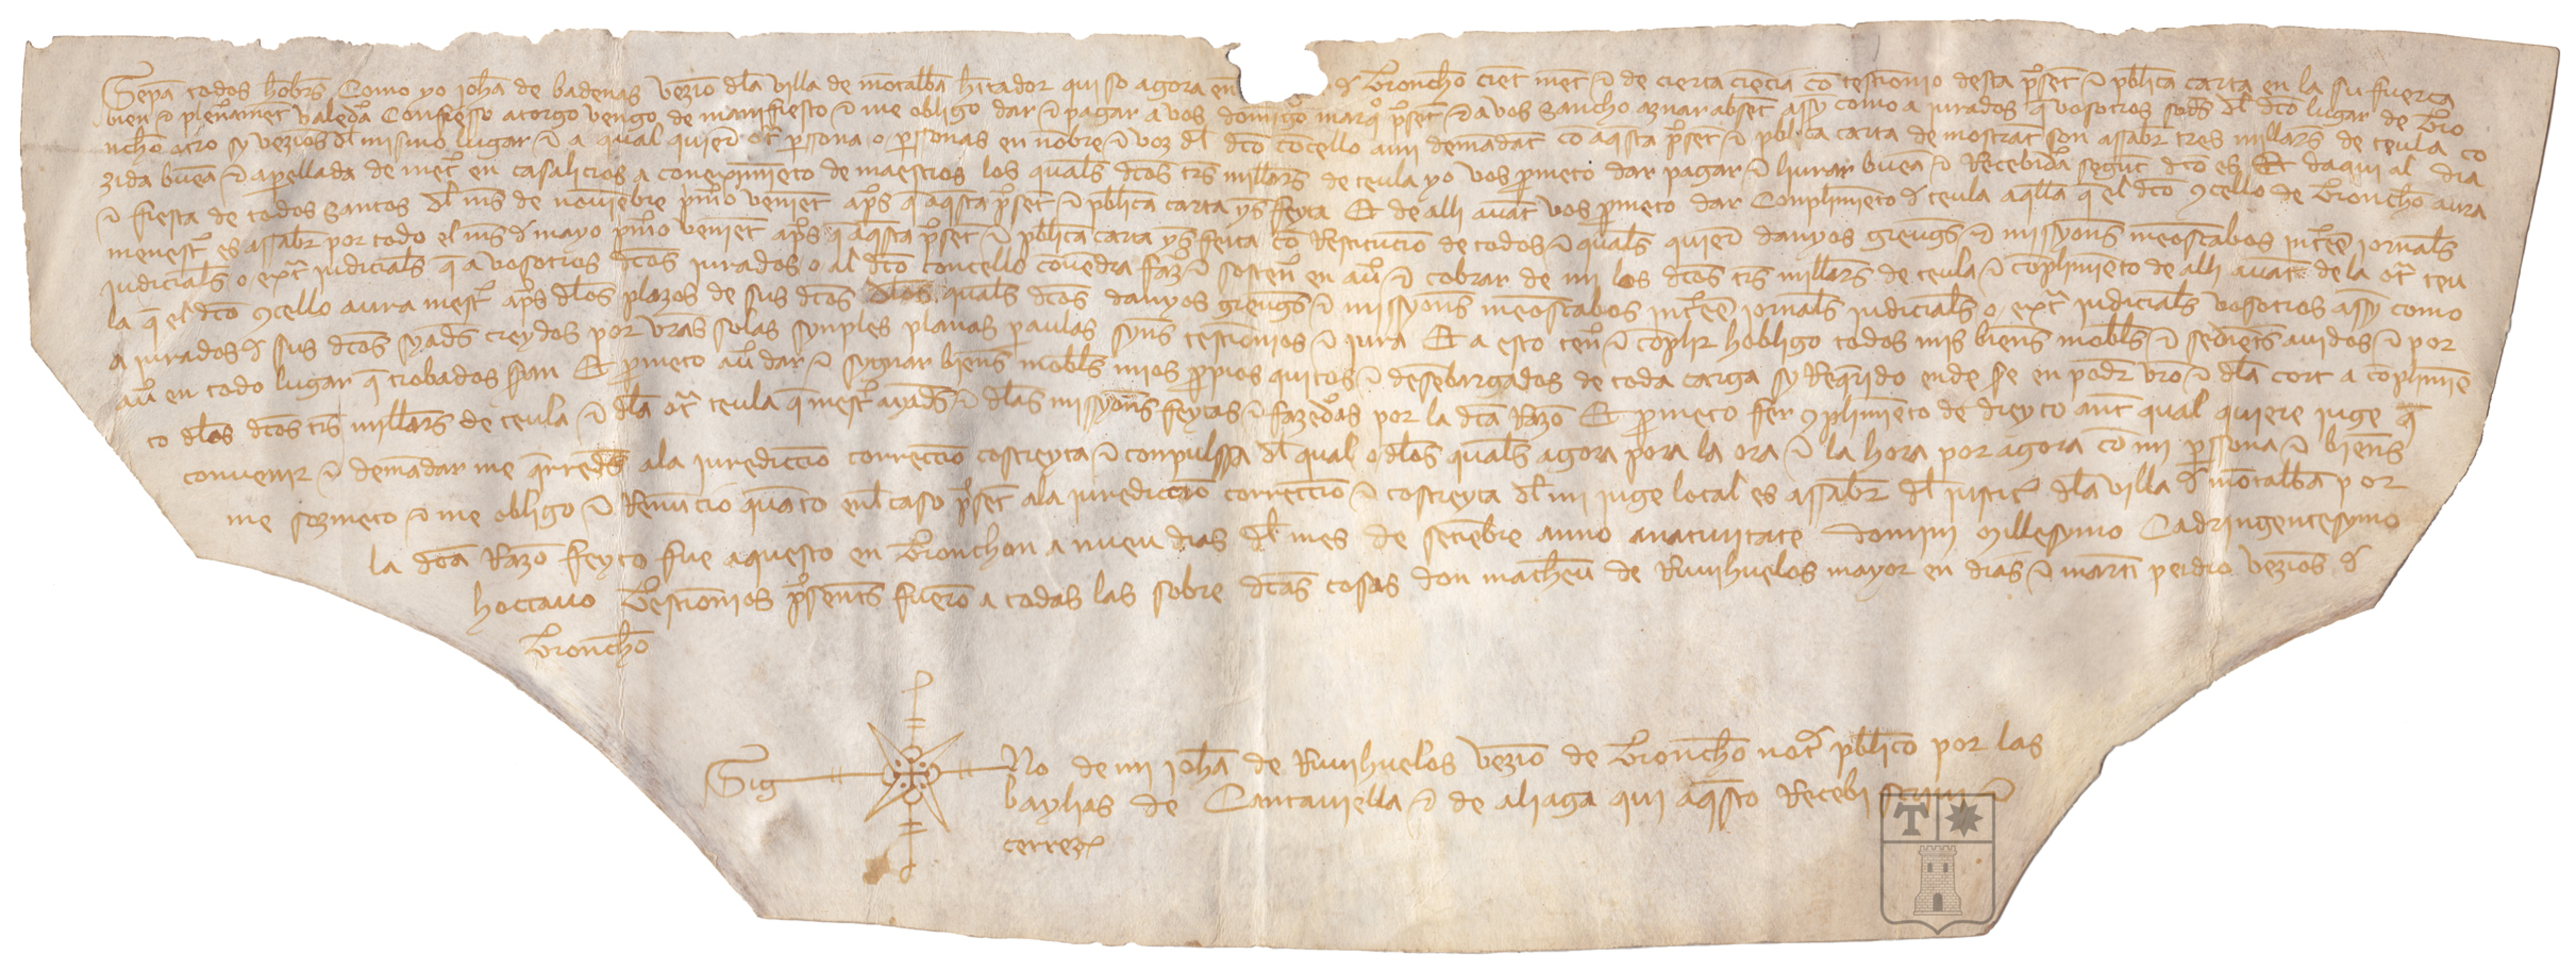 Sepã todos hõbrs Como yo johã de badenas vezio dla villa de mõtalbã hitador qui so agora en d Bronchõ ciẽt mẽt τ de cierta ciẽcia cõ testimonio desta psẽt τ pblica carta en la su fuerça
bien τ plenamẽt valedã Confiesso atorgo vengo de manifiesto τ me obligo dar τ pagar a vos domigo marq psẽt τ a vos sancho aznar absẽt assy como a jurados q vosotros sods dl dco lugar de Bro
nchõ otro sy vezios dl mismo lugar τ a qual quier ot psona o psonas en nõbre τ voz dl dco cõcello aun demãdãt cõ aqsta psẽt τ pblica carta de mostrãt son assabr tres millars de teula co
zida buẽa τ aparellada de met en casalicios a conoximiẽto de maestros los quals dcos trs millars de teula yo vos pmeto dar pagar τ liurar buẽa τ Recebida segũt dco es Et daqui al dia
τ fiesta de todos santos dl mes de nouiẽbre pmo veniẽt aps q aqsta psẽt τ pblica carta ys feyta Et de alli auãt vos pmeto dar Conplimiẽto d teula aqlla q el dco 9cello de Bronchõ aura
menest es assabr por todo el mes d mayo pmo veniẽt aps q aqsta psẽt τ pblica carta ys feita cõ Restitucio de todos τ quals quier danyos greugs τ missyons meoscabos int̃ee jornals
judicials o ext judicials q a vosotros dcos jurados o al dco concello cõuedra faz τ sosten en au τ cobrar de mi los dcos trs millars de teula τ cõplimiẽto de alli auãt de la ot teu
la q el dco 9cello aura mest aps dlos plazos de sus dcos dlos quals dcos danyos greugs τ missyons meoscabos int̃ee jornals judicials o ext judicials vosotros assy como
a jurados d sus dcos syads creydos por vras solas synples planas paulas syns testimonios τ jura Et a esto ten τ cõplir hobligo todos mis biens mobls τ sediẽts auidos τ por
au en todo lugar q trobados seran Et pmeto au dar τ sygnar biens mobls mios ppios quitos τ desebargados de toda carga sy Reqrido ende se en podr vro τ dla cort a cõplimiẽ
to dlos dcos trs millars de teula τ dla ot teula q mest ayads τ dlas missyons feytas τ fazedas por la dca Razõ Et pmeto fer 9plimiẽto de dreyto ant qual quiere juge q
convenir τ demãdar me qrreds ala juredictio correctio costreyta τ conpulssa dl qual o dlos quals agora pora la ora τ la hora por agora cõ mi psona τ biens
me sozmeto τ me obligo τ Renũcio quãto enl caso psẽt ala juredictio correctio τ costreyta dl mi juge local es assabr dl justic dla villa d mõtalbã por
la dca Razõ feyto fue aquesto en Bronchon a nueu dias dl mes de setiẽbre anno anatiuitate domini Millesymo Cadringentesymo
hoctauo Testimonios psents fuerõ a todas las sobre dcas cosas don matheu de Ruuihuelos mayor en dias τ marti pedro vezios d
Bronchõ
Sig No de mi johã de Ruuihuelos vezio de Bronchõ not pblico por las
baylias de Cantauiella τ de aliaga qui aqsto Recebi scriui τ
cerrez
T